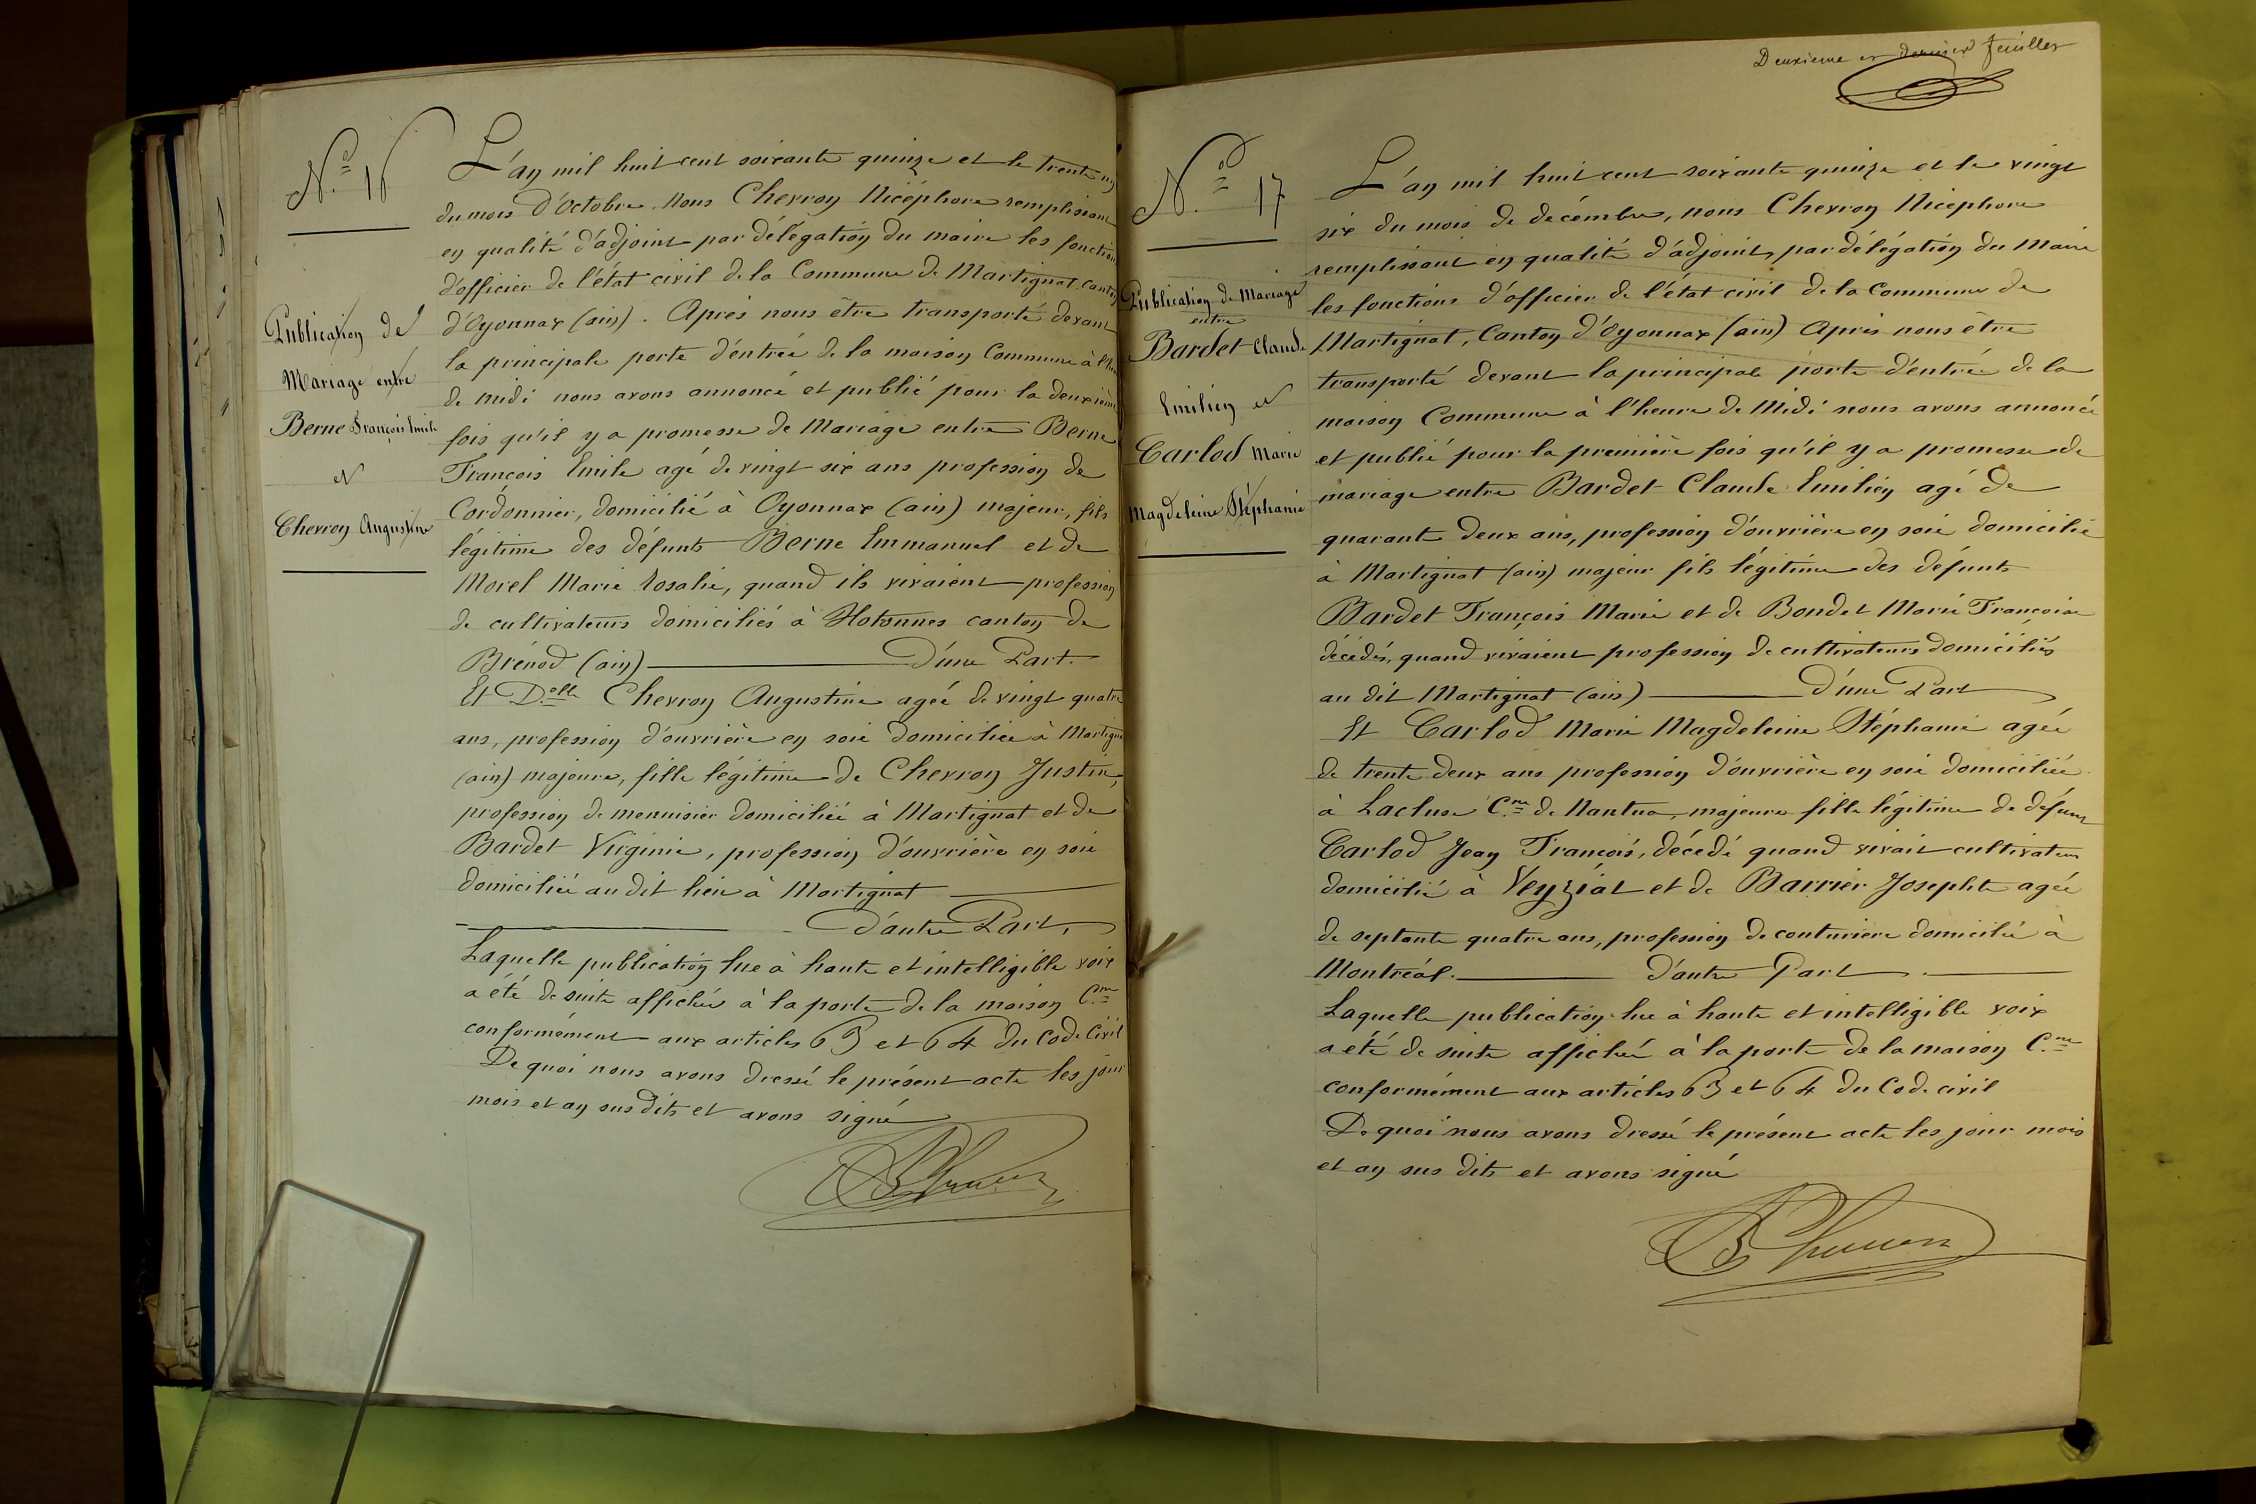 N.º 16
Publication de
Mariage entre
Berne François Emile
et
Chevron Augustine
L'an mil huit cent soixante quinze et le trente un
du mois d'Octobre. Nous Chevron Nicéphore remplissant
en qualité d'adjoint par délégation du maire les fonctions
d'officier de l'état civil de la Commune de Martignat canton
d'Oyonnax (ain). Après nous être transporté devant
la principale porte d'entrée de la maison Commune à l'heure
de midi nous avons annoncé et publié pour la deuxième
fois qu'il y a promesse de Mariage entre Berne
François Emile agé de vingt six ans profession de
Cordonnier, domicilié à Oyonnax (ain) majeur, fils
légitime des défunts Berne Emmanuel et de
Morel Marie Rosalie, quand ils vivaient profession
de cultivateurs domiciliés à Hotonnes canton de
Brénod (ain) D'une Part.
Et D.elle Chevron Augustine agée de vingt quatre
ans, profession d'ouvrière en soie domiciliée à Martignat
(ain) majeure, fille légitime de Chevron Justin,
profession de menuisier domicilié à Martignat et de
Bardet Virginie, profession d'ouvrière en soie
domiciliée au dit lieu à Martignat
D'autre Part,
Laquelle publication lue à haute et intelligible voix
a été de suite affichée à la porte de la maison C.ne
conformément aux articles 63 et 64 du Code Civil
De quoi nous avons dressé le présent acte les jour
mois et an sus dits et avons signé
Deuxième et dernier feuillet
N.º 17
Publication de Mariage
entre
Bardet Claude
Emilien et
Carlod Marie
Magdeleine Stéphanie
L'an mil huit cent soixante quinze et le vingt
six du mois de décembre, nous Chevron Nicéphore
remplissant en qualité d'adjoint, par délégation du Maire
les fonctions d'officier de l'état civil de la commune de
Martignat, Canton d'Oyonnax (ain) Après nous être
transporté devant la principale porte d'entrée de la
maison Commune à l'heure de Midi nous avons annoncé
et publié pour la première fois qu'il y a promesse de
mariage entre Bardet Claude Emilien agé de
quarante deux ans, profession d'ouvrière en soie domicilié
à Martignat (ain) majeur fils légitime des défunts
Bardet François Marie et de Bondet Marie Françoise
décédés, quand vivaient profession de cultivateurs domiciliés
au dit Martignat (ain) D'une Part
Et Carlod Marie Magdeleine Stéphanie agée
de trente deux ans profession d'ouvrière en soie domiciliée
à Lacluse C.ne de Nantua, majeure fille légitime de défunt
Carlod Jean François, décédé quand vivait cultivateur
domicilié à Veyziat et de Barrier Josephte agée
de septante quatre ans, profession de couturière domicilié à
Montréal. d'autre Part
Laquelle publication lue à haute et intelligible voix
a été de suite affichée à la porte de la maison C.ne
conformément aux articles 63 et 64 du Code civil
De quoi nous avons dressé le présent acte les jour mois
et an sus dits et avons signé